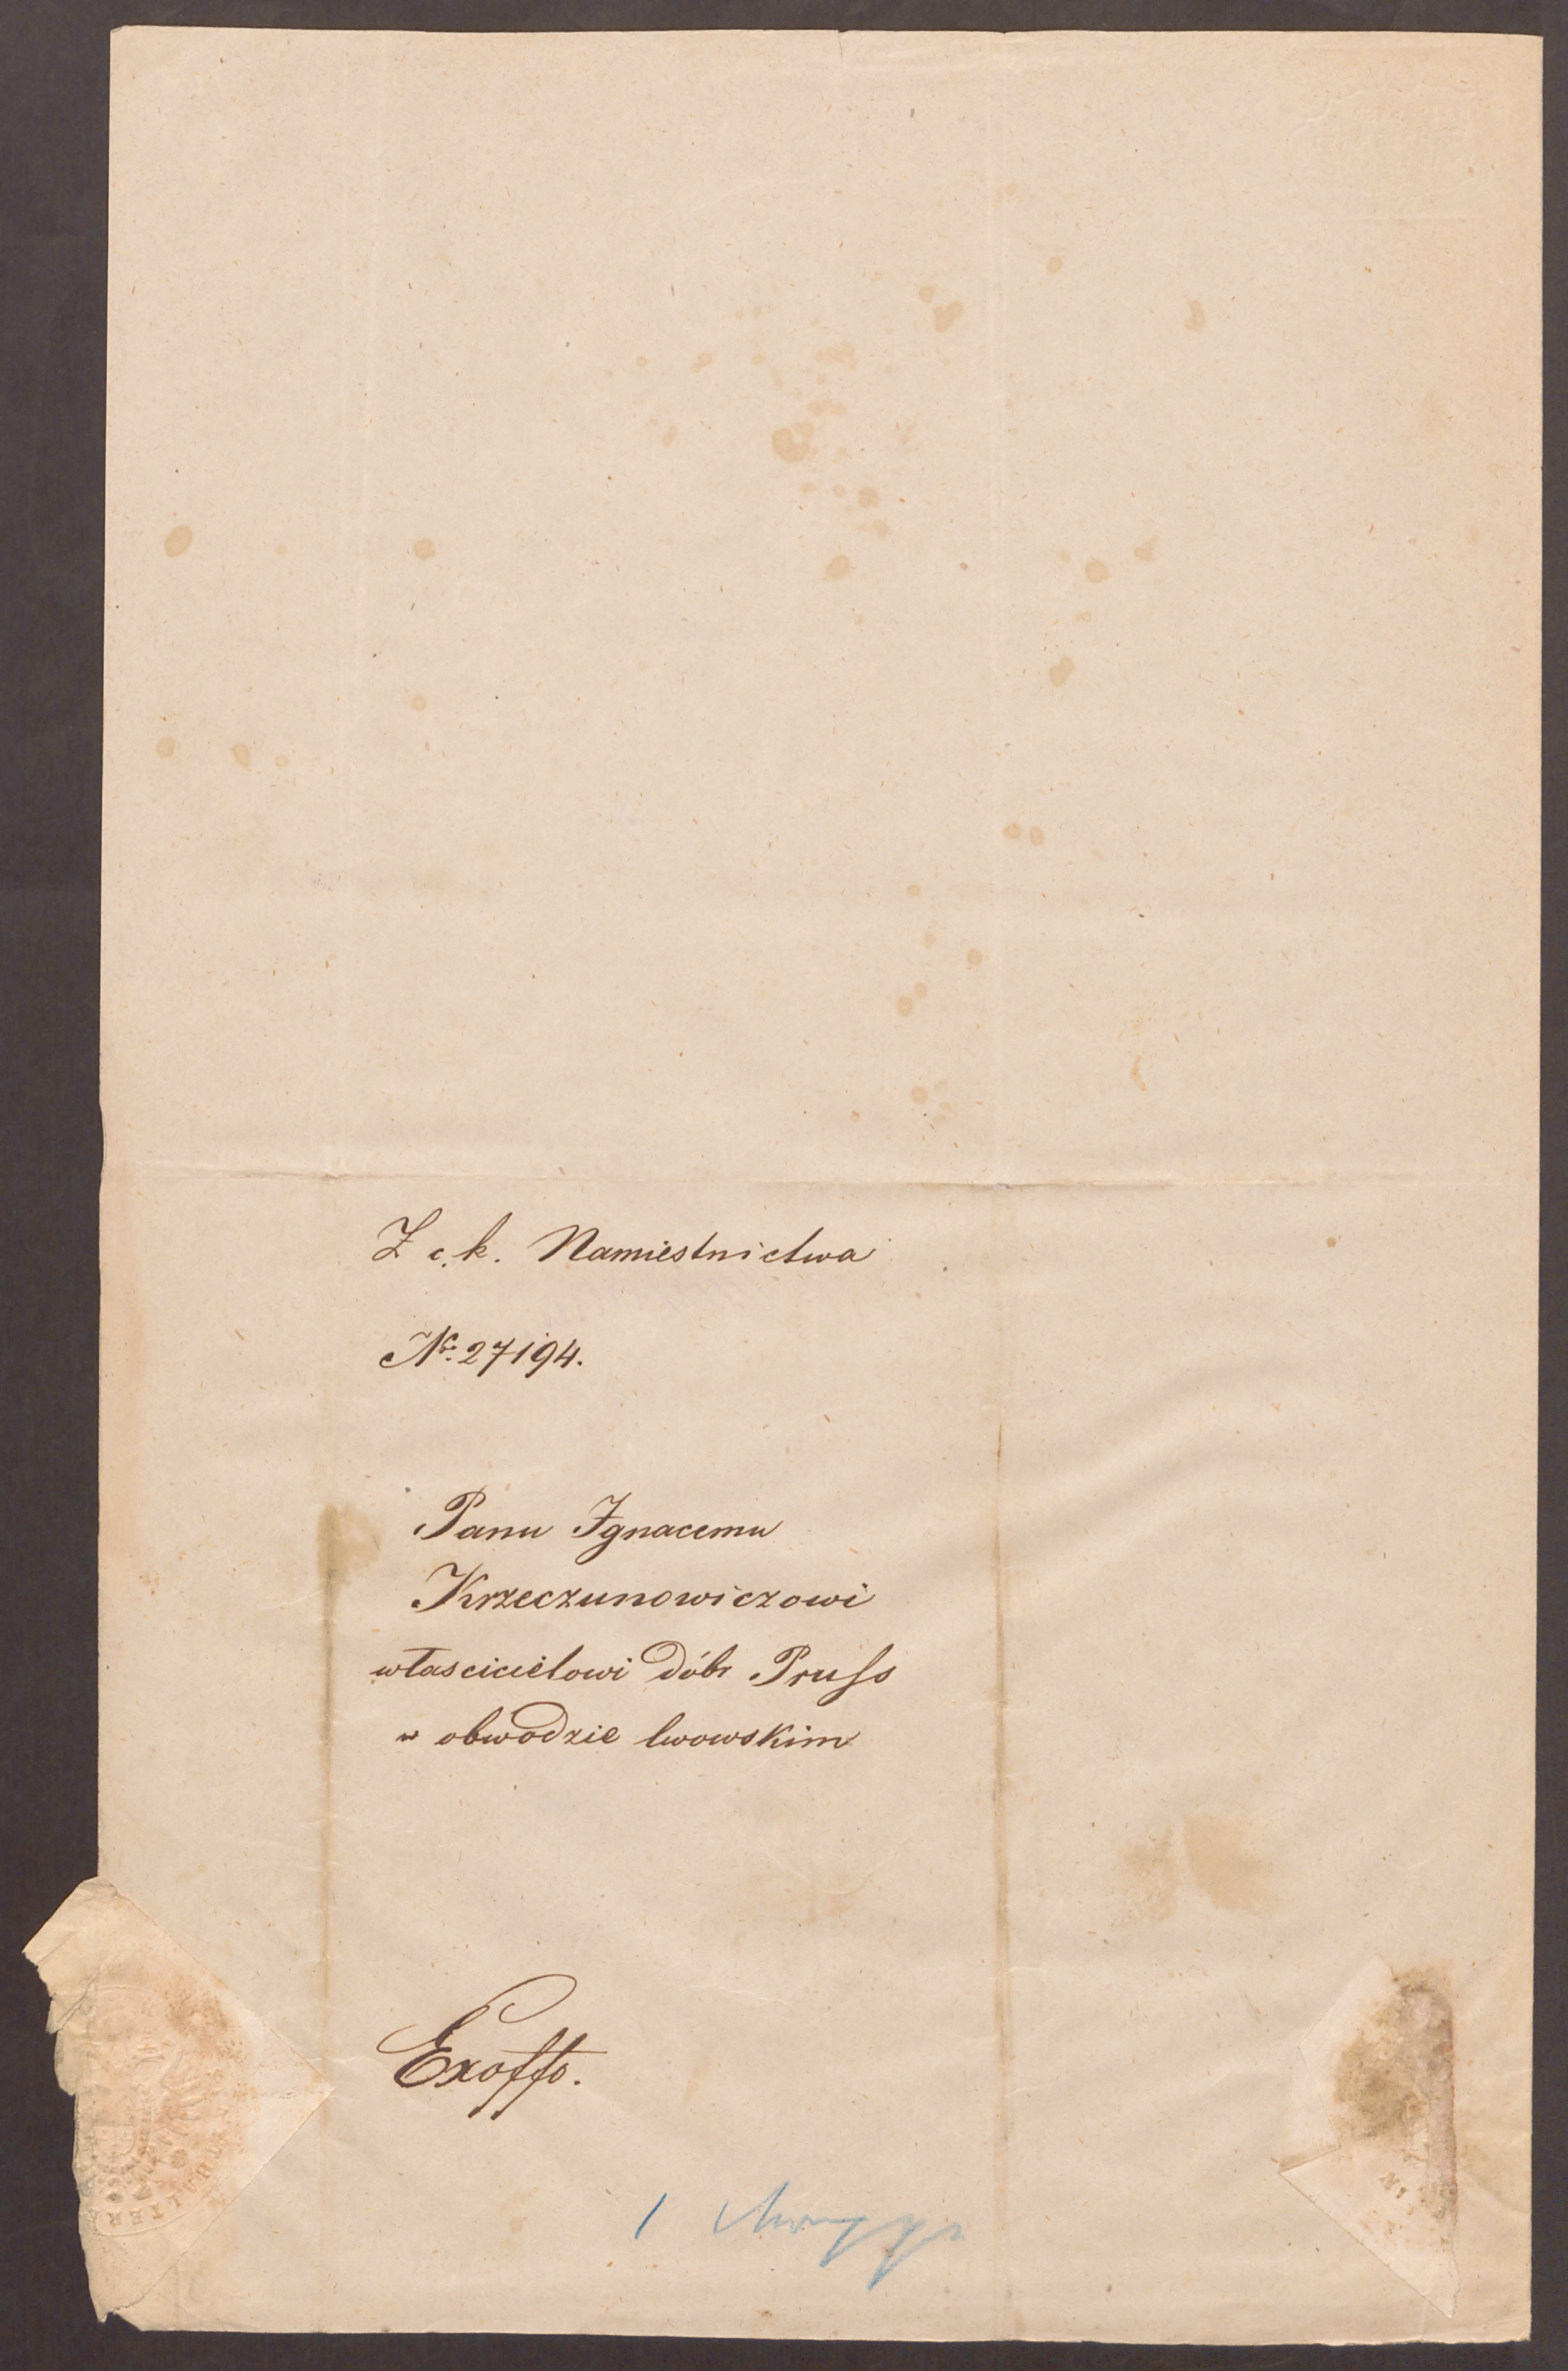 Z c. k. Namiestnictwa
Nr: 27194.
Panu Ignacemu
Krzeczunowiczowi
włascicielowi dóbr Pruss
w obwodzie lwowskim
Exoffo.
1